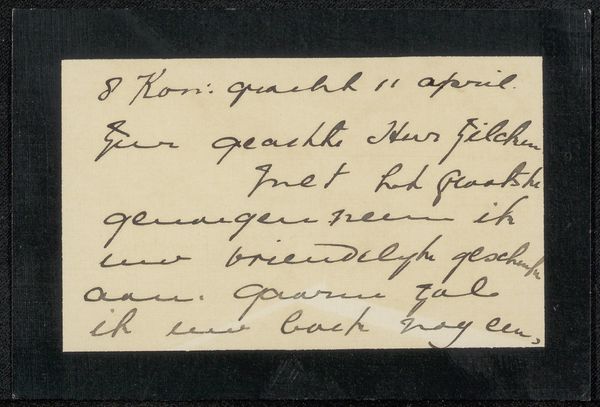 8 Kon: gracht 11 april.
Zeer geachte Heer Zilcken
Met het grootste
genoegen neem ik
uw vriendelijke geschenk
aan. Gaarne zal
ik uw boek nog een,